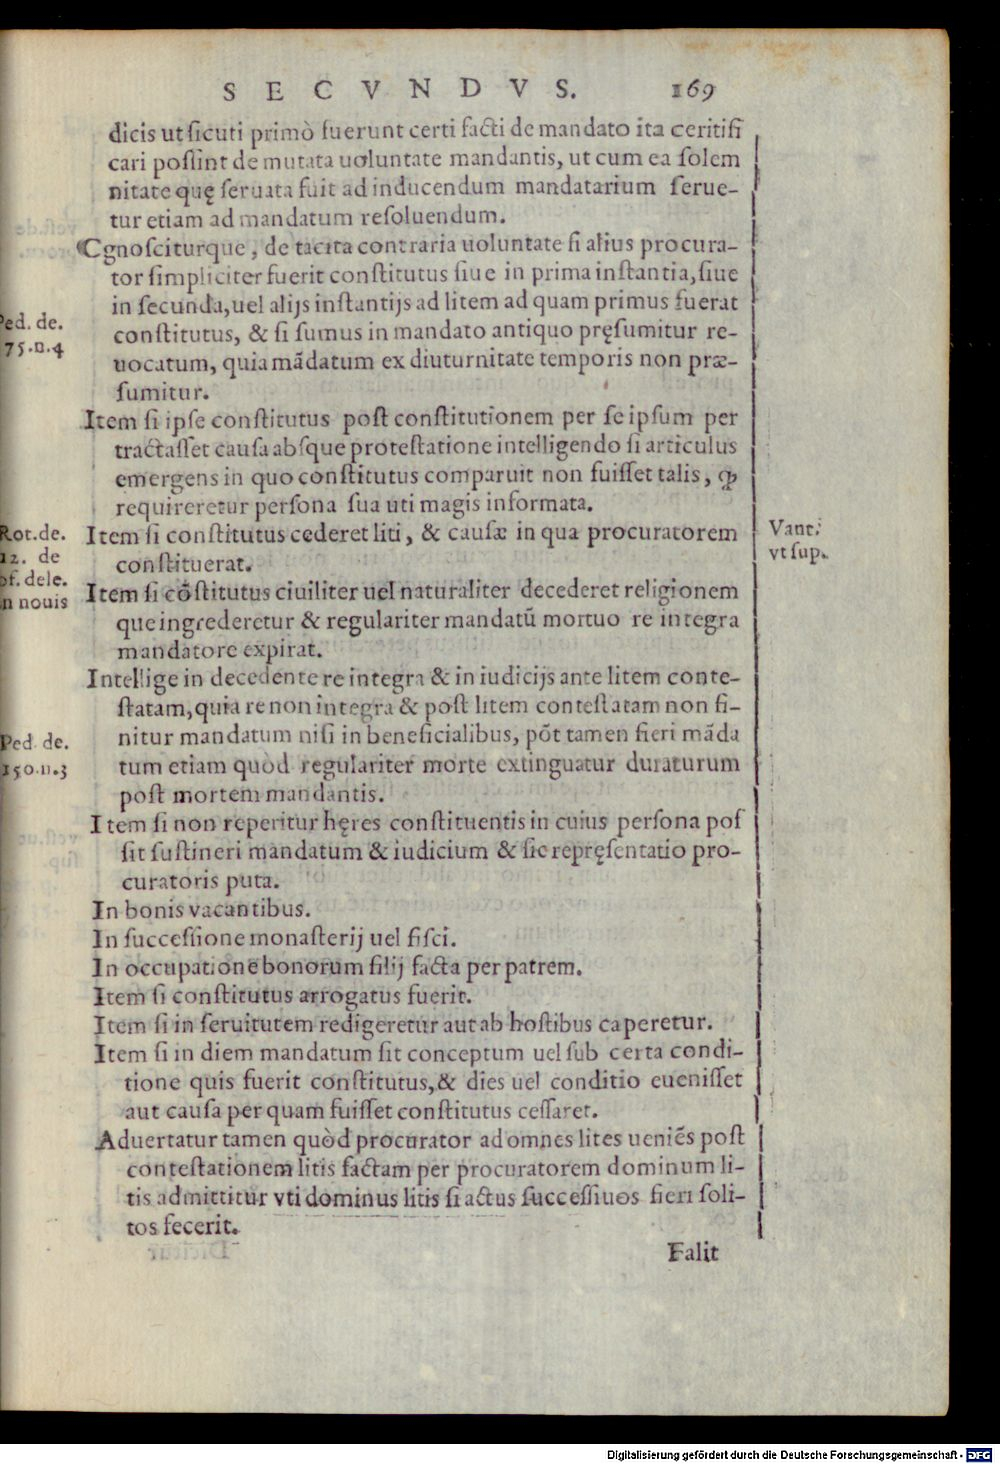 SECVNDVS. 169
dicis ut sicuti primò fuerunt certi facti de mandato ita ceritifi
cari possint de mutata uoluntate mandantis, ut cum ea solem
nitate quę seruata fuit ad inducendum mandatarium serue-
tur etiam ad mandatum resoluendum.
Cgnosciturque, de tacita contraria uoluntate si alius procura-
tor simpliciter fuerit constitutus siue in prima instantia, siue
in secunda, uel alijs instantijs ad litem ad quam primus fuerat
constitutus, & si sumus in mandato antiquo pręsumitur re-
uocatum, quia mādatum ex diuturnitate temporis non præ-
sumitur.
Ped. de.
75.n.4
Item si ipse constitutus post constitutionem per se ipsum per
tractasset causa absque protestatione intelligendo si articulus
emergens in quo constitutus comparuit non fuisset talis, ꝙ
requireretur persona sua uti magis informata.
Item si constitutus cederet liti, & causæ in qua procuratorem
constituerat.
Rot. de.
12. de
of. dele.
in nouis
Vant.
vt sup.
Item si cōstitutus ciuiliter uel naturaliter decederet religionem
que ingrederetur & regulariter mandatū mortuo re integra
mandatore expirat.
Intellige in decedente re integra & in iudicijs ante litem conte-
statam, quia re non integra & post litem contestatam non fi-
nitur mandatum nisi in beneficialibus, pōt tamen fieri māda
tum etiam quòd regulariter morte extinguatur duraturum
post mortem mandantis.
Ped. de.
150.n.3
Item si non reperitur hęres constituentis in cuius persona pos
sit sustineri mandatum & iudicium & sic repręsentatio pro-
curatoris puta.
In bonis vacantibus.
In successione monasterij uel fisci.
In occupatione bonorum filij facta per patrem.
Item si constitutus arrogatus fuerit.
Item si in seruitutem redigeretur aut ab hostibus caperetur.
Item si in diem mandatum sit conceptum uel sub certa condi-
tione quis fuerit constitutus, & dies uel conditio euenisset
aut causa per quam fuisset constitutus cessaret.
Aduertatur tamen quòd procurator ad omnes lites ueniēs post
contestationem litis factam per procuratorem dominum li-
tis admittitur vti dominus litis si actus successiuos fieri soli-
tos fecerit.
Falit
Digitalisierung gefördert durch die Deutsche Forschungsgemeinschaft - DFG